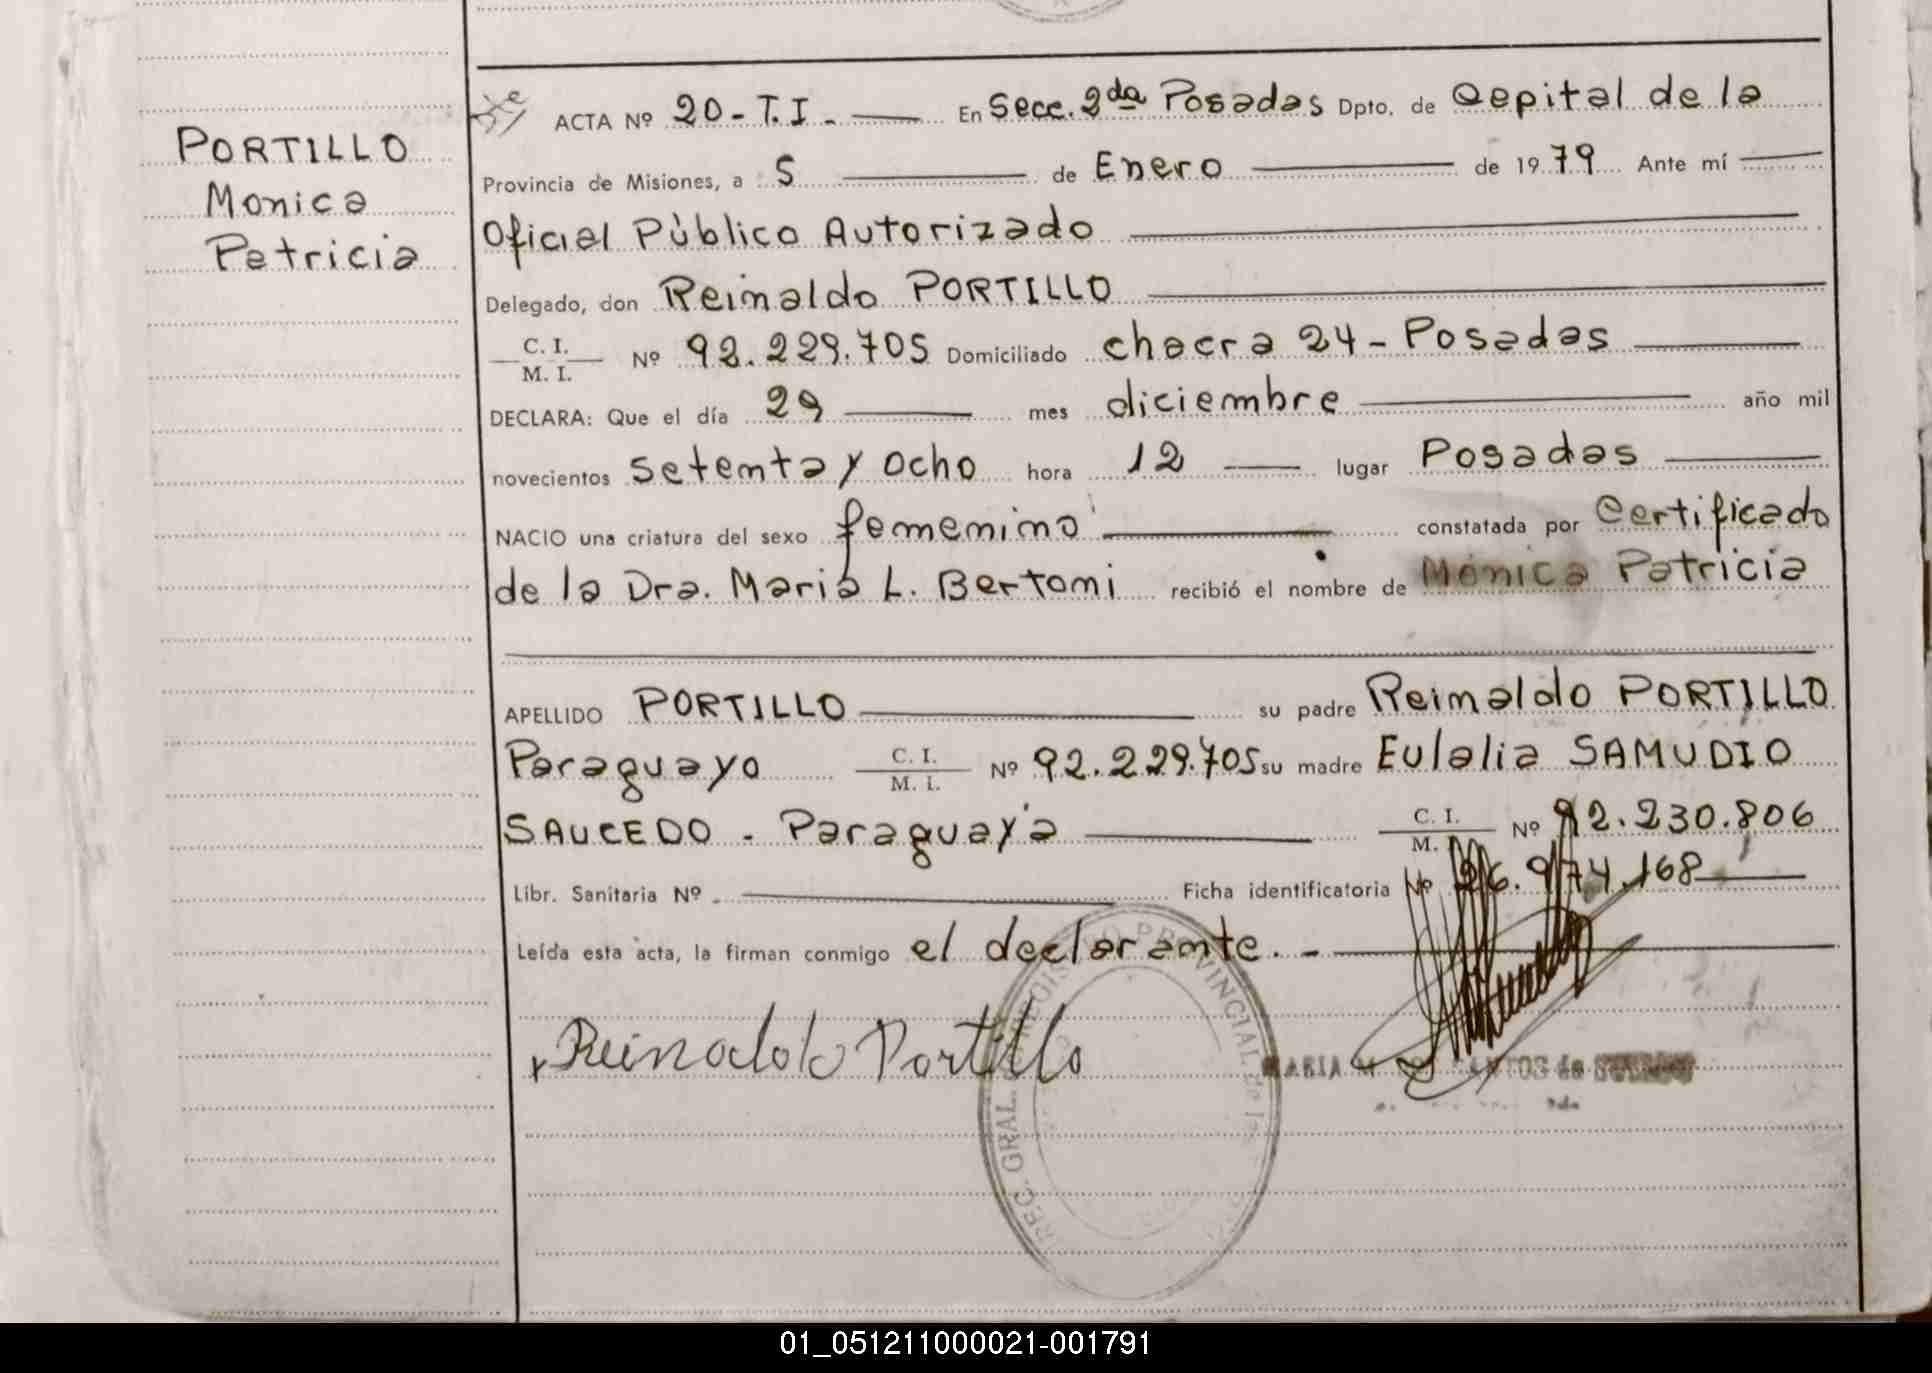 PORTILLO
Monica
Patricia
ACTA Nº 20 - T.I. - En Secc. 2da Posadas Dpto. de Capital de la
Provincia de Misiones, a 5 de Enero de 1979 Ante mí
Oficial Público Autorizado
Delegado, don Reinaldo PORTILLO
C. I.
M. I. Nº 92.229.705 Domiciliado chacra 24 - Posadas
DECLARA: Que el día 29 mes diciembre año mil
novecientos setenta y ocho hora 12 lugar Posadas
NACIO una criatura del sexo femenino constatada por Certificado
de la Dra. Maria L. Bertoni recibió el nombre de Mónica Patricia
APELLIDO PORTILLO su padre Reinaldo PORTILLO
Paraguayo C. I. M. I. Nº 92.229.705 su madre Eulalia SAMUDIO
SAUCEDO - Paraguaya C. I. M. Nº 92.230.806
Libr. Sanitaria Nº Ficha identificatoria Nº 26.974.168
Leída esta acta, la firman conmigo el declarante. -
x Reinaldo Portillo
REG. GRAL. REGISTRO PROVINCIAL de
MARIA de
01_051211000021-001791